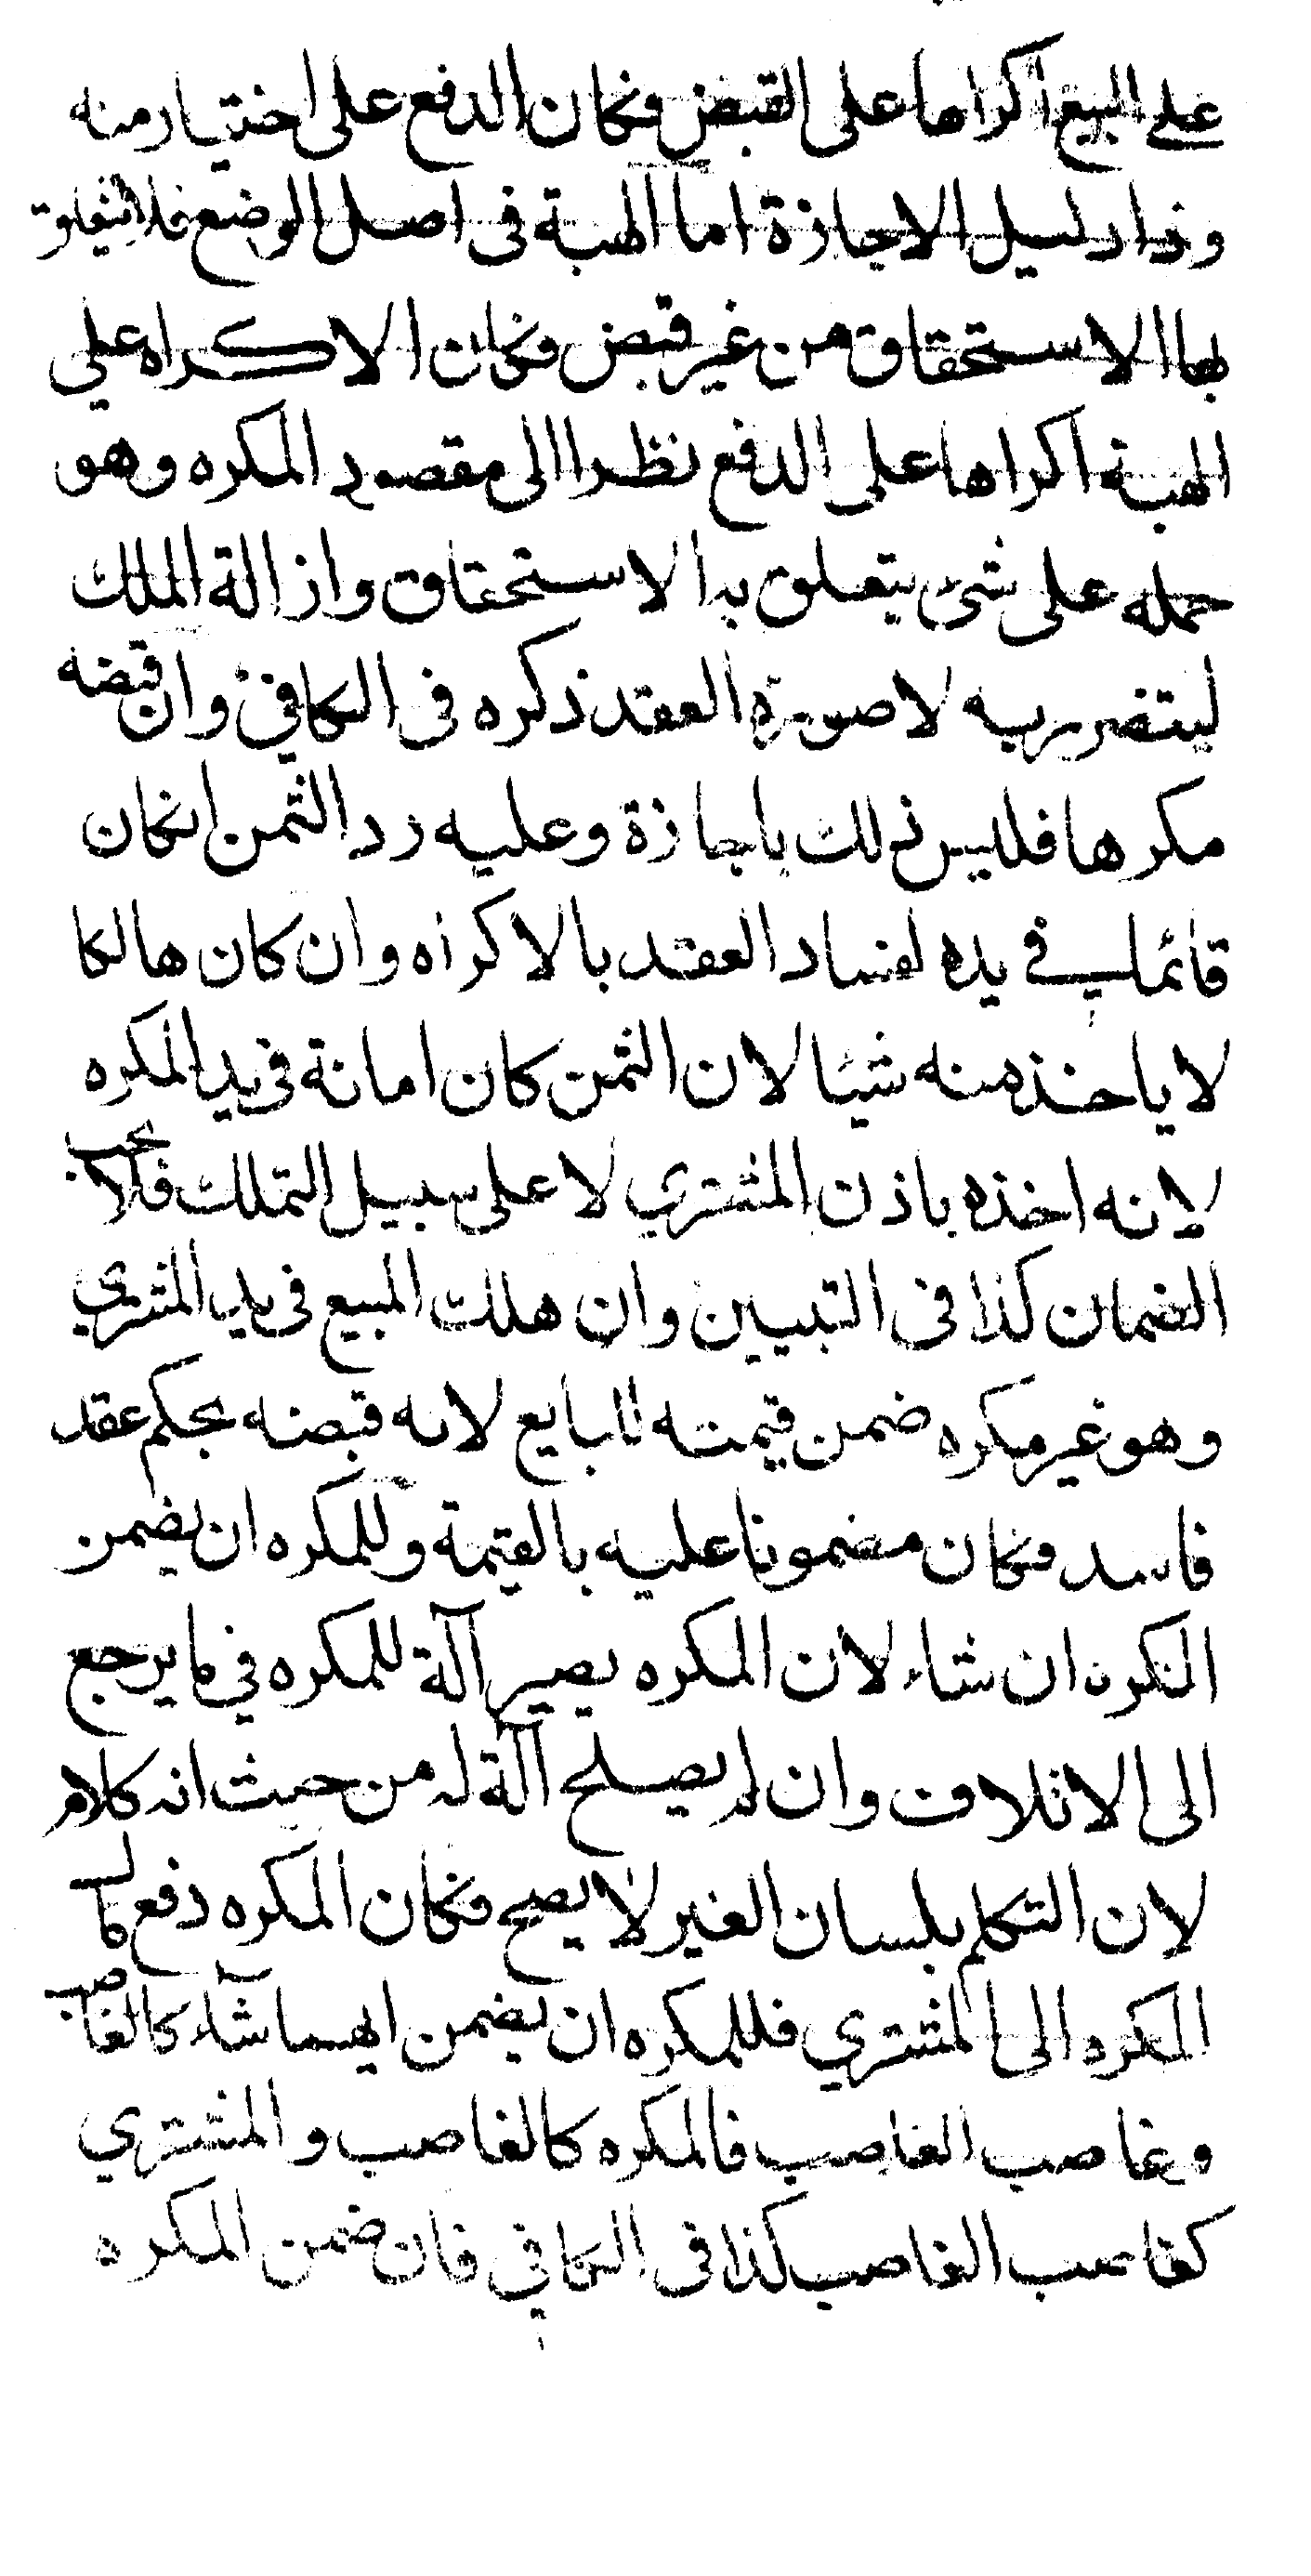 على البيع اكراها على القبض فكان الدفع على اختيار منه
وذا دليل الاجازة اما الهبة فى اصل الوضع فلا يتعلق
بها الاستحقاق من غير قبض فكان الاكراه على
الهبة اكراها على الدفع نظرا الى مقصود المكره وهو
حمله على شئ يتعلق به الاستحقاق وازالة الملك
ليتضرر به لا صورة العقد ذكره فى الكافى وان قبضه
مكرها فليس ذلك باجازة وعليه رد الثمن ان كان
قائما في يده لفساد العقد بالاكراه وان كان هالكا
لا ياخذ منه شيئا لان الثمن كان امانة في يد المكره
لانه اخذه باذن المشتري لا على سبيل التملك فلا يجب
الضمان كذا فى التبيين وان هلك المبيع فى يد المشتري
وهو غير مكره ضمن قيمته للبايع لانه قبضه بحكم عقد
فاسد فكان مضمونا عليه بالقيمة وللمكره ان يضمن
المكره ان شاء لان المكره يصير آلة للمكره في ما يرجع
الى الاتلاف وان لم يصلح آلة له من حيث انه كلام
لان التكلم بلسان الغير لا يصح فكان المكره دفع مال
المكره الى المشتري فللمكره ان يضمن ايهما شآء كالغاصب
وغاصب الغاصب فالمكره كالغاصب والمشتري
كغاصب الغاصب كذا فى الكافي فان ضمن المكره